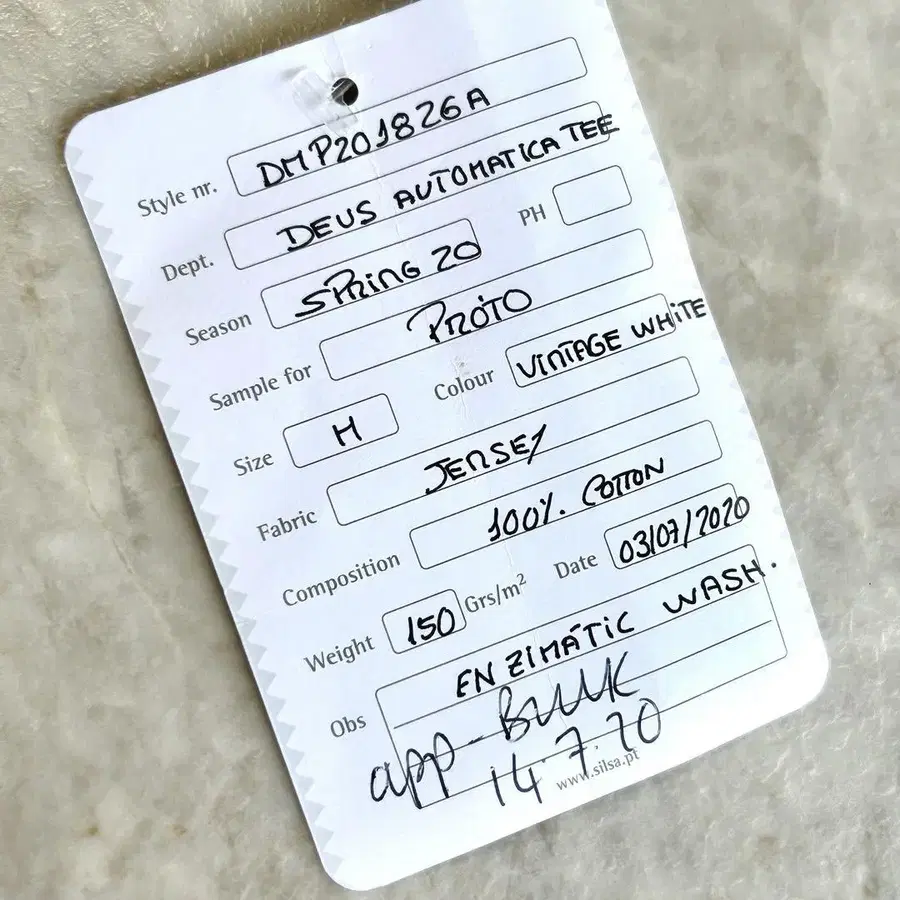 Style nr. DMP201826A
Dept. DEUS AUTOMATICA TEE
Season SPRING 20 PH
Sample for PROTO
Size M Colour VINTAGE WHITE
Fabric JERSEY
Composition 100% COTTON
Weight 150 Grs/m² Date 03/07/2020
Obs ENZIMÁTIC WASH.
app - BULK
14.7.20
www.silsa.pt